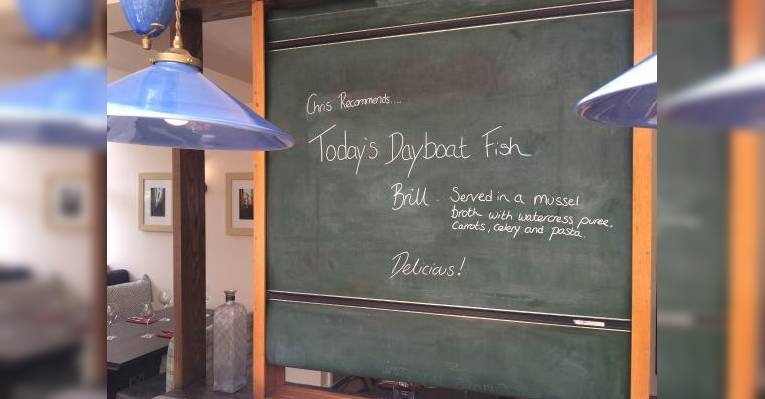 Chris Recommends....
Today's Dayboat Fish
Brill - Served in a mussel
broth with watercress puree,
carrots, celery and pasta.
Delicious!